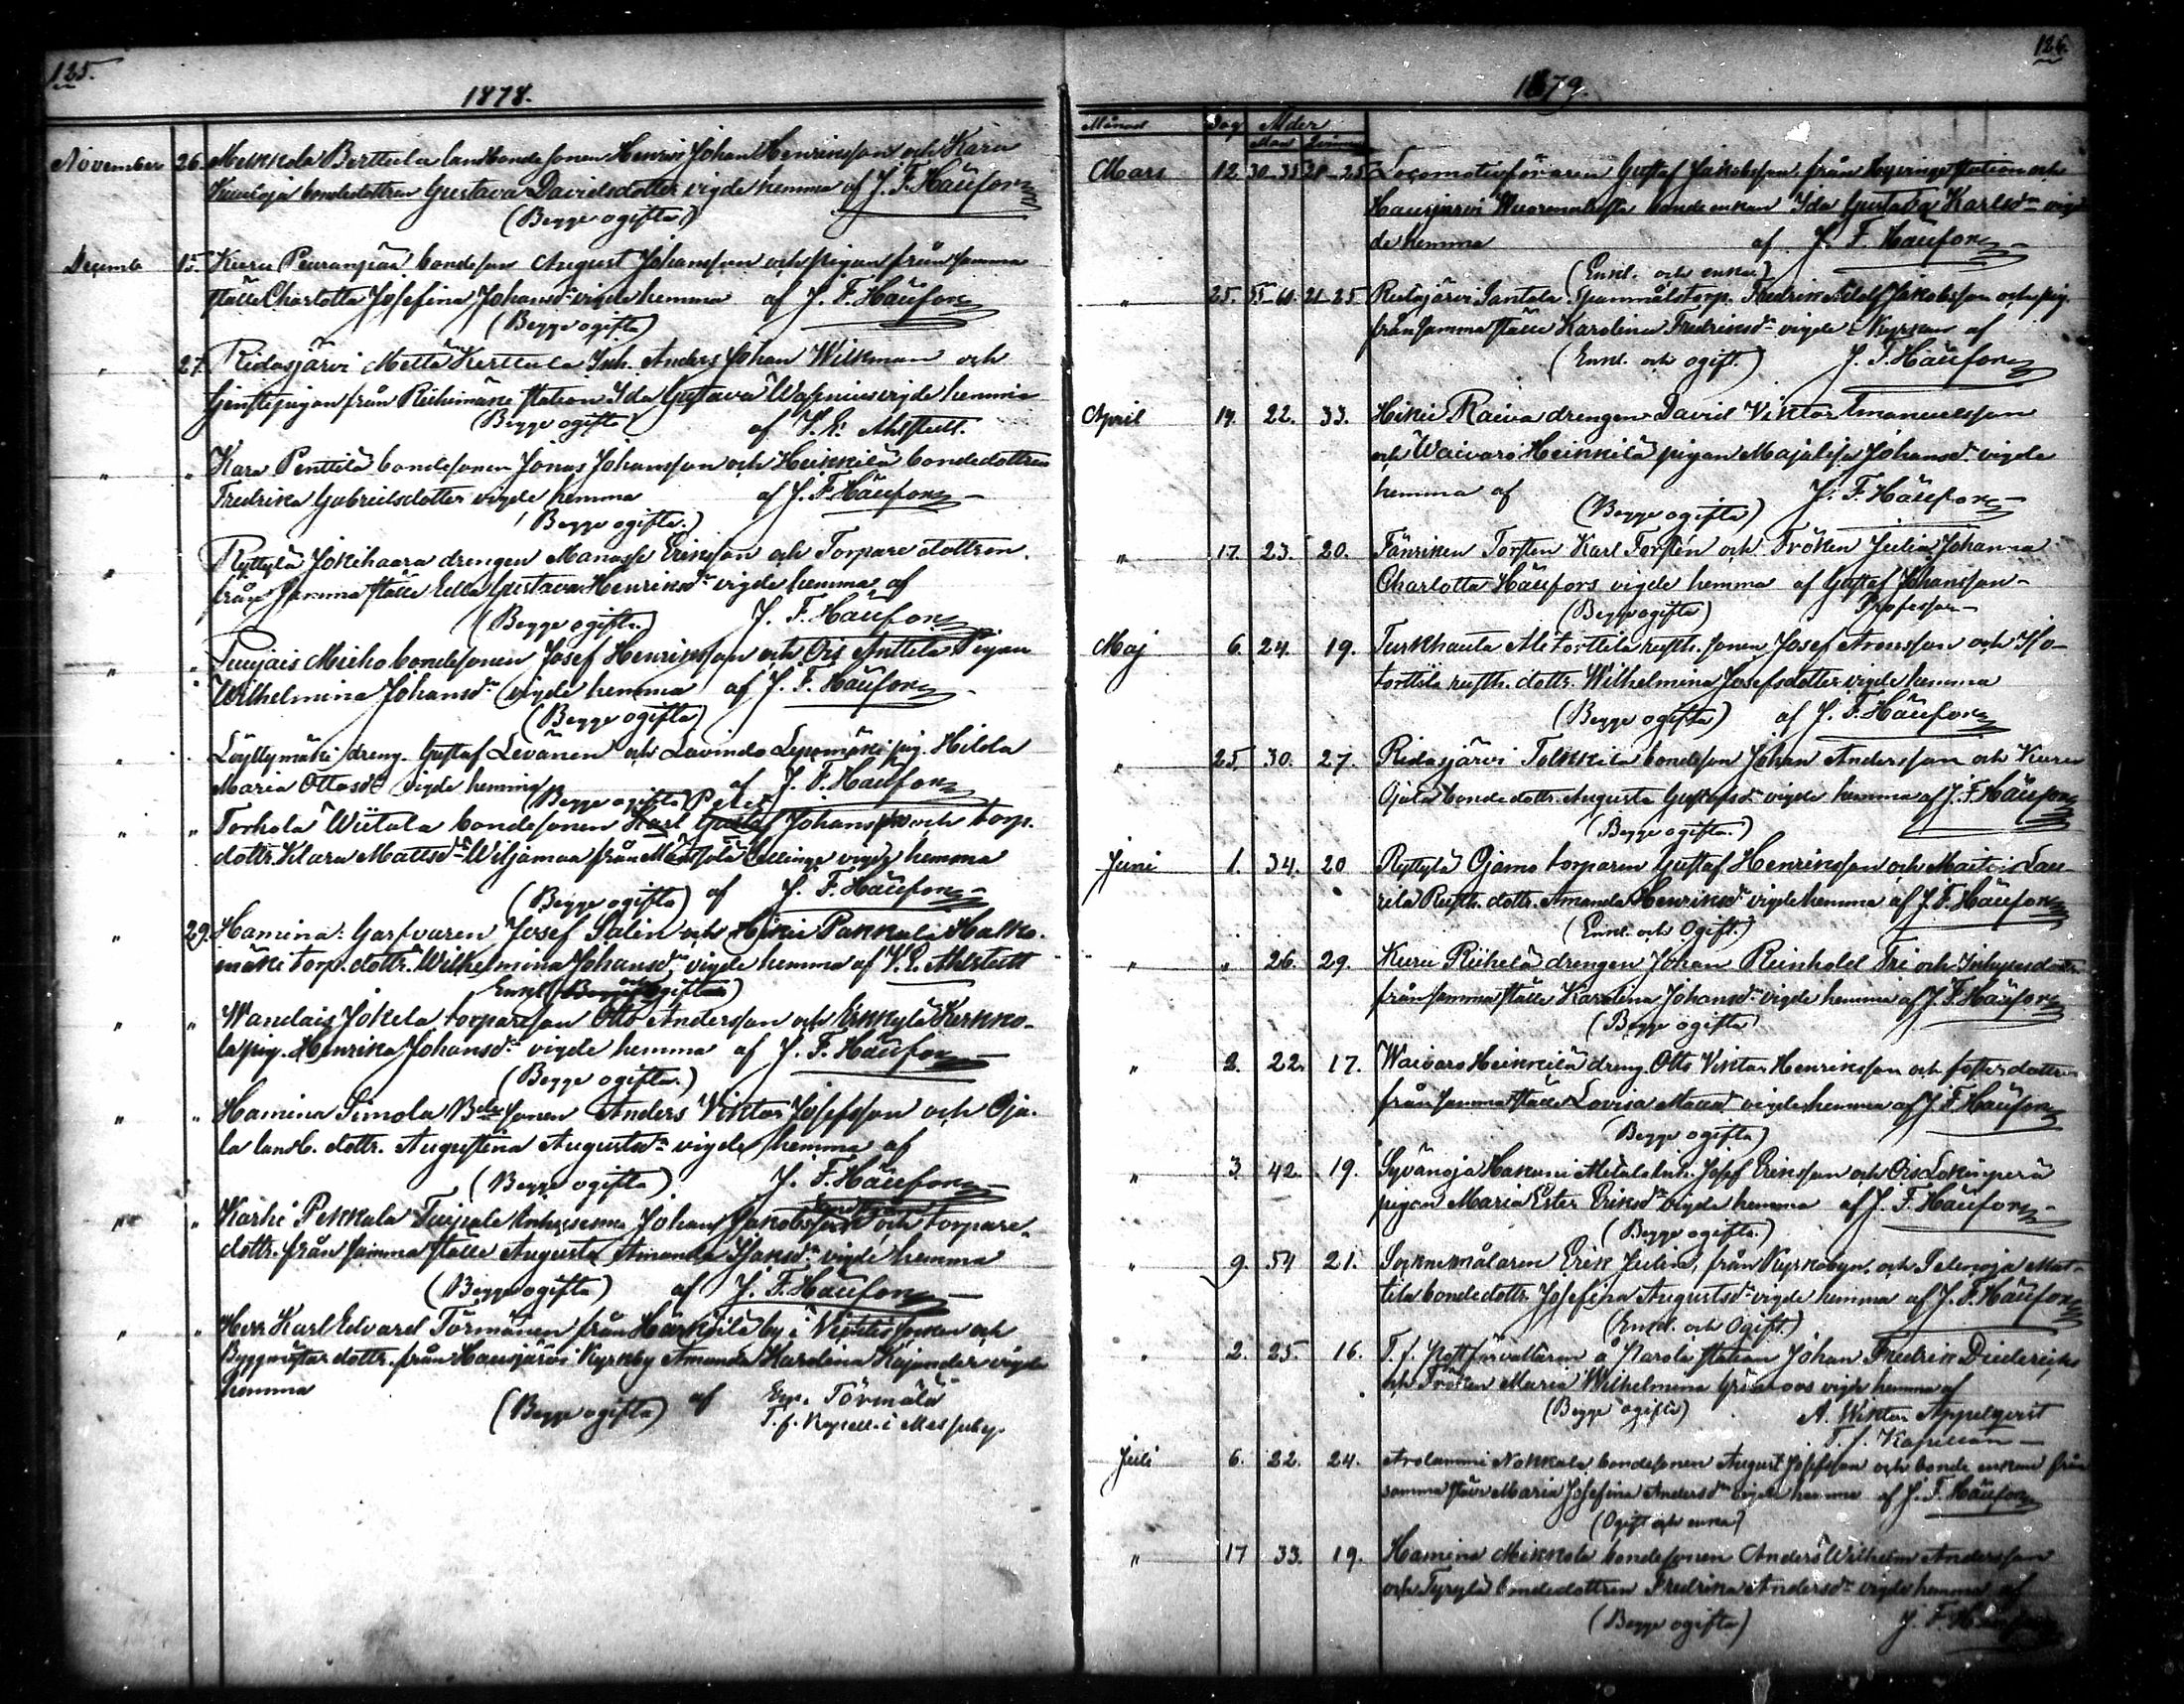 125.
1878.
November 26. Mekkola Berttula landbondesonen Henrik Johan Henriksson och Kara
bondedottren Gustava Davidsdotter vigde hemma af J. F. Häufors
(Begge ogifta)
Decemb 15. Kuru Peuranpää bondeson August Johansson och pigan från samma
ställe Charlotta Josefina Johansdr vigde hemma af J. F. Häufors
(Begge ogifta)
" 27. Ridasjärvi Mettä Kerttula Inh. Anders Johan Wilkman och
pigan från Riihimäki station Ida Gustava vigde hemma
(Begge ogifta) af V. E. Ahlstedt.
" " Kara Penttilä bondesonen Jonas Johansson och Heikkilä bondedottren
Fredrika Gabrielsdotter vigde hemma af J. F. Häufors
(Begge ogifta.)
" Ryttylä Jokihaara drengen Manasse Eriksson och Torpare dottren
från samma ställe Eella Gustava Henriksdr vigde hemma af
(Begge ogifta.) J. F. Häufors
" " Puujais Mieho bondesonen Josef Henriksson och Ois Anttila Pigan
Wilhelmina Johansdr vigde hemma af J. F. Häufors
(Begge ogifta)
" " Löyttymäki dreng. Gustaf Levänen och Lavinto Lepomäki pig. Hilda
Maria Ottosdr vigde hemma af J. F. Häufors
(Begge ogifta) Peter
" " Torhola Wiitala bondesonen Karl Gustaf Johansson och torp.
dottr. Klara Mattsdr Wiljamaa från Mäntsälä Sellinge vigde hemma
(Begge ogifta) af J. F. Häufors
" 29. Hamina: Garfvaren Josef Salin och Hikiä Pakkala Kalko-
mäki torp. dottr. Wilhelmina Johansdr vigde hemma af V. E. Ahlstedt
Enkl. och ogift
" " Wantais Jokela torpareson Otto Andersson och Erkkylä Kerkko-
la pig. Henrika Johansdr vigde hemma af J. F. Häufors
(Begge ogifta.)
" " Hamina Simola Bdesonen Anders Viktor Josefsson och Oja-
la landb. dottr. Augustina Augustsdr vigde hemma af
(Begge ogifta) J. F. Häufors
" " Karhi Pekkala Johan Jakobsson och torpare-
dottr. från samma ställe Augusta Amanda vigde hemma
(Begge ogifta) af J. F. Häufors
" " Herr Karl Edvard Törmänen från Härköilä by i Vichtis socken och
Byggmästar dottr. från Hausjärvi Kyrkby Amanda Karolina Kajander vigde
hemma (Begge ogifta) af Törmälä
T. f. Kapell. i Messuby.
126.
1879.
Månad Dag Ålder
Man Qvinna
Mars 12. 30-35 20-25 Locomotivföraren Gustaf Jakobsson från Hyvinge station och
Hausjärvi bonde enkan Ida Gustava Karlsdr vig-
de hemma af J. F. Häufors
(Enkl. och enka.)
" 25. 55-60. 21-25 Ridasjärvi Santala Spannmålstorp. Fredrik Adolf Jakobsson och pig.
från samma ställe Karolina Fredriksdr vigde i Kyrkan af
(Enkl. och ogift.) J. F. Häufors
April 14. 22. 33. Hikiä Raiva drengen David Viktor Emanuelsson
och Waivaro Heikkilä pigan Majalisa Johansdr vigde
hemma af J. F. Häufors
(Begge ogifta)
" 17. 23. 20. Fänriken Torsten Karl Forstén och Fröken Julia Johanna
Charlotta Häufors vigde hemma af Gustaf Johansson
(Begge ogifta) Professor
Maj 6. 24. 19. Turkhauta Ali Torttila rusth. sonen Josef Aronsson och Iso-
torttila rusth. dottr. Wilhelmina Josefsdotter vigde hemma
(Begge ogifta) af J. F. Häufors
" 25. 30. 27. Ridasjärvi Tolkkila bondeson Johan Andersson och Kuru
Ojala bondedottr. Augusta Gustafsdr vigde hemma af J. F. Häufors
(Begge ogifta.)
Juni 1. 34. 20 Ryttylä Ojamo torparen Gustaf Henriksson och Lau-
rila Rusth. dottr. Amanda Henriksdr vigde hemma af J. F. Häufors
(Enkl. och Ogift.)
" " 26. 29. Kuru Riihelä drengen Johan Reinhold Fri och Inhysesdottr
från samma ställe Karolina Johansdr vigde hemma af J. F. Häufors
(Begge ogifta)
" 2. 22. 17. Waivaro Heikkilä dreng. Otto Viktor Henriksson och fosterdottren
från samma ställe Lovisa vigde hemma af J. F. Häufors
(Begge ogifta)
" 3. 42. 19. Syvänoja Hakuni Josef Eriksson och Ois Lokinperä
pigan Maria Ester Eriksdr vigde hemma af J. F. Häufors
(Begge ogifta.)
" 9. 54 21. Socknemålaren Erik Julin, från Kyrkobyn, och Selänoja Mat-
tila bondedottr. Josefina Augustsdr vigde hemma af J. F. Häufors
(Enkl. och Ogift.)
" 2. 25. 16. T. f. Postförvaltaren å Parola station Johan Fredrik Diedrichs
och Fröken Maria Wilhelmina Grönroos vigde hemma af
(Begge ogifta) A. Wiktor Appelqvist
T. f. Kapellan
Juli 6. 22. 24. Arolammi Nokkala bondesonen August Josefsson och bonde enkan från
samma ställe Maria Josefina Andersdr vigde hemma af J. F. Häufors
(Ogift och enka)
" 17 33. 19. Hamina Mikkola bondesonen Anders Wilhelm Andersson
och Tyrylä bondedottren Fredrika Andersdr vigde hemma af
(Begge ogifta) J. F. Häufors